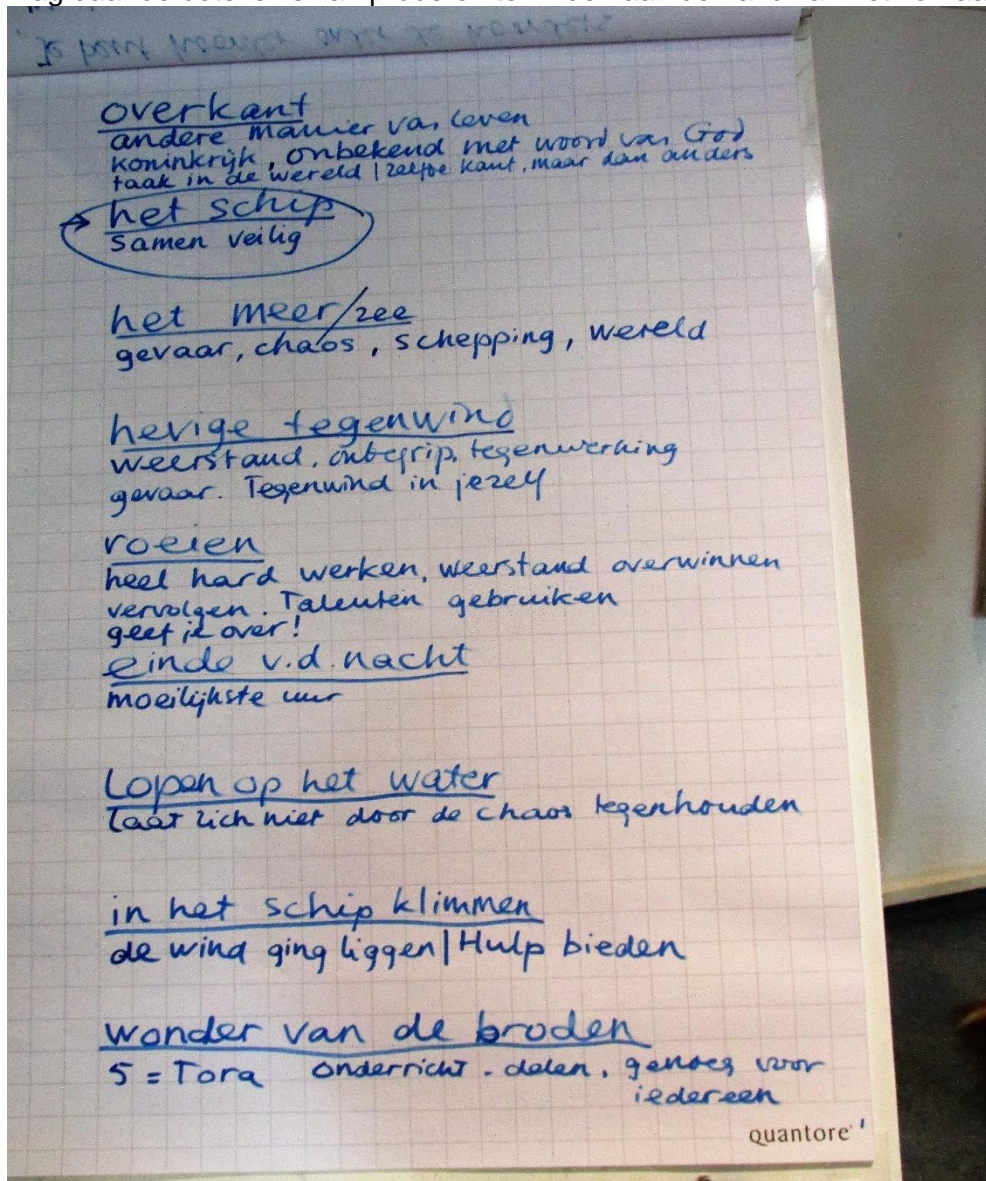 "Je bent hoorder onder de hoorders"
overkant
andere manier van leven
koninkrijk, onbekend met woord van God
taak in de wereld | zelfde kant, maar dan anders
→ het schip
samen veilig
het meer/zee
gevaar, chaos, schepping, wereld
hevige tegenwind
weerstand, onbegrip, tegenwerking
gevaar. Tegenwind in jezelf
roeien
heel hard werken, weerstand overwinnen
vervolgen. Talenten gebruiken
geef je over!
einde v.d. nacht
moeilijkste uur
Lopen op het water
laat zich niet door de chaos tegenhouden
in het schip klimmen
de wind ging liggen | Hulp bieden
wonder van de broden
5 = Tora onderricht - delen, genoeg voor
iedereen
quantore